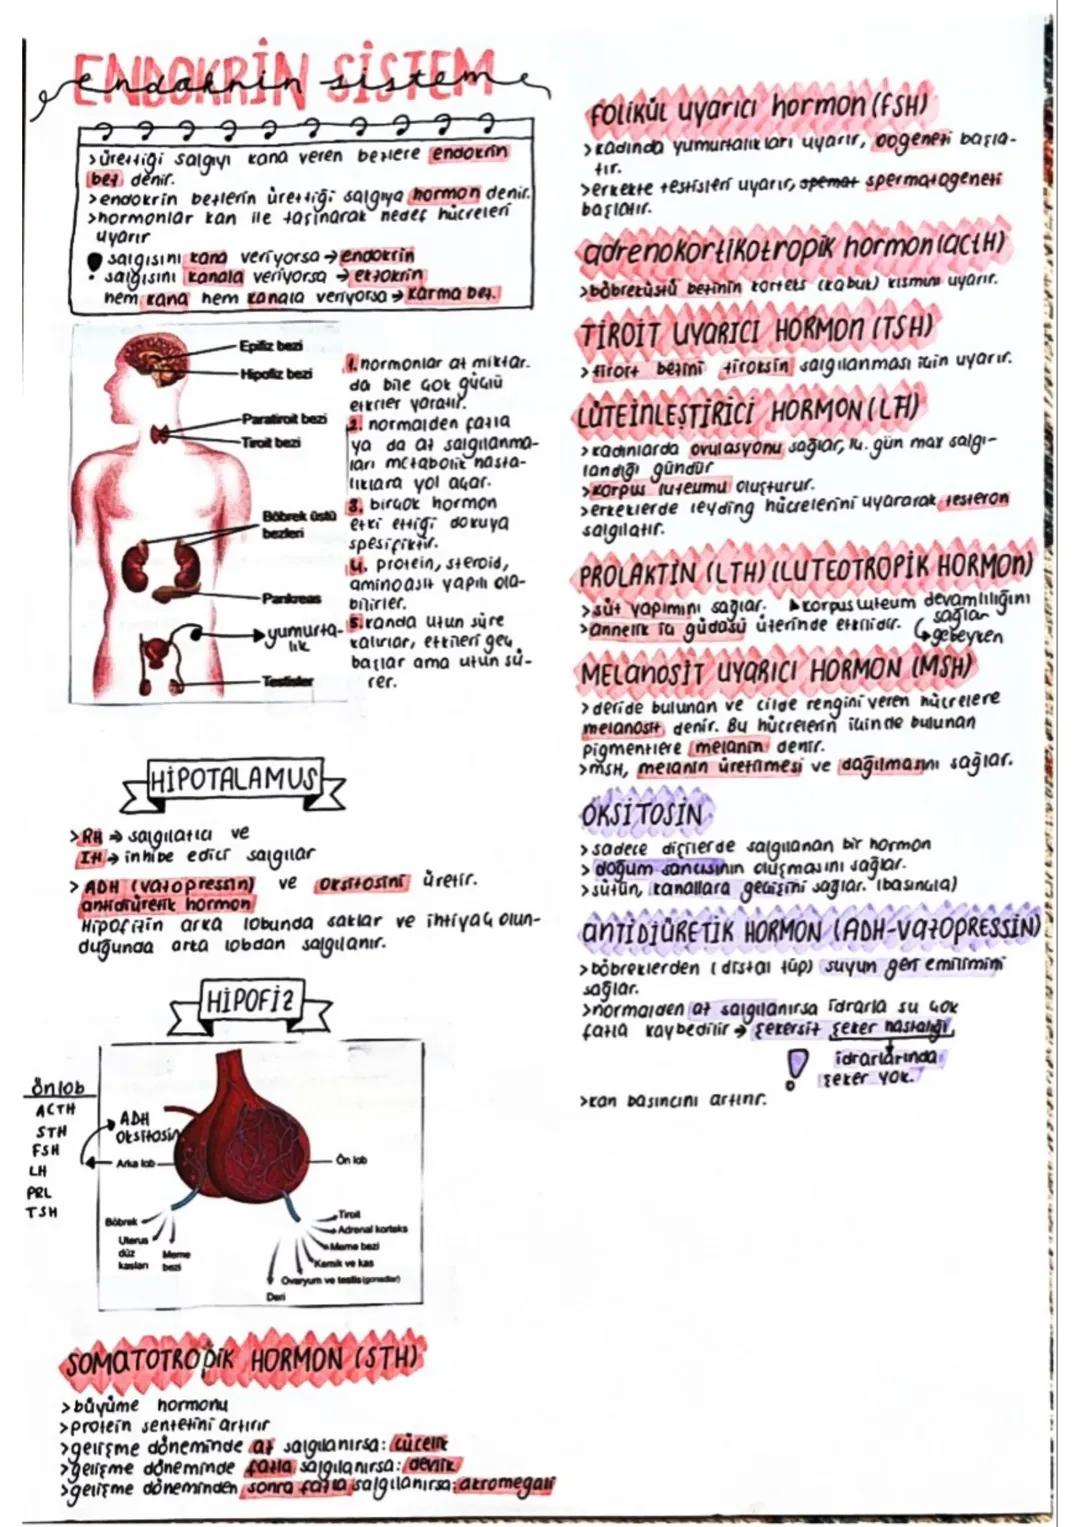 ENDOKRİN SİSTEM
endokrin sistem
>ürettiği salgıyı kana veren bezlere endokrin
bez denir.
>endokrin bezlerin ürettiği salgıya hormon denir.
>hormonlar kan ile taşınarak hedef hücreleri
uyarır
salgısını kana veriyorsa → endokrin
• salgısını kanala veriyorsa → ekzokrin
hem kana hem kanala veriyorsa → karma bez.
Epifiz bezi
Hipofiz bezi
Paratiroit bezi
Tiroit bezi
Böbrek üstü
bezleri
Pankreas
yumurta-
lık
Testisler
1. hormonlar az miktar-
da bile çok güçlü
etkiler yaratır.
2. normalden fazla
ya da az salgılanma-
ları metabolik hasta-
lıklara yol açar.
3. birçok hormon
etki ettiği dokuya
spesifiktir.
4. protein, steroid,
aminoasit yapılı ola-
bilirler.
5. kanda uzun süre
kalırlar, etkileri geç
başlar ama uzun sü-
rer.
HİPOTALAMUS
>RH → salgılatıcı ve
IH → inhibe edici salgılar
>ADH (vazopressin) ve oksitosini üretir.
antidiüretik hormon
Hipofizin arka lobunda saklar ve ihtiyaç olun-
duğunda arka lobdan salgılanır.
HİPOFİZ
Ön lob
ACTH
STH
FSH
LH
PRL
TSH
ADH
Oksitosin
Arka lob
Ön lob
Böbrek
Uterus
düz
kasları
Meme
bezi
Tiroit
Adrenal korteks
Meme bezi
Kemik ve kas
Ovaryum ve testis (gonadlar)
Deri
SOMATOTROPİK HORMON (STH)
>büyüme hormonu
>protein sentezini artırır
>gelişme döneminde az salgılanırsa: cücelik
>gelişme döneminde fazla salgılanırsa: devlik
>gelişme döneminden sonra fazla salgılanırsa: akromegali
folikül uyarıcı hormon (FSH)
>kadında yumurtalıkları uyarır, oogenezi başla-
tır.
>erkekte testisleri uyarır, spermatogenezi
başlatır.
adrenokortikotropik hormon (actH)
>böbreküstü bezinin korteks (kabuk) kısmını uyarır.
TİROİT UYARICI HORMON (TSH)
>tiroit bezini tiroksin salgılanması için uyarır.
LÜTEİNLEŞTİRİCİ HORMON (LH)
>kadınlarda ovulasyonu sağlar, 14. gün max salgı-
landığı gündür
>korpus luteumu oluşturur.
>erkeklerde leyding hücrelerini uyararak testeron
salgılatır.
PROLAKTİN (LTH) (LUTEOTROPİK HORMON)
>süt yapımını sağlar. ▲korpus luteum devamlılığını
sağlar
>annelik iç güdüsü üzerinde etkilidir. ↳gebeyken
MELANOSİT UYARICI HORMON (MSH)
>deride bulunan ve cilde rengini veren hücrelere
melanosit denir. Bu hücrelerin içinde bulunan
pigmentlere melanin denir.
>MSH, melanin üretilmesi ve dağılmasını sağlar.
OKSİTOSİN
>sadece dişilerde salgılanan bir hormon
>doğum sancısının oluşmasını sağlar.
>sütün, kanallara geçişini sağlar. (basınçla)
ANTİDİÜRETİK HORMON (ADH-VAZOPRESSİN)
>böbreklerden (distal tüp) suyun geri emilimini
sağlar.
>normalden az salgılanırsa idrarla su çok
fazla kaybedilir → şekersiz şeker hastalığı
idrarlarında
şeker yok.
>kan basıncını artırır.